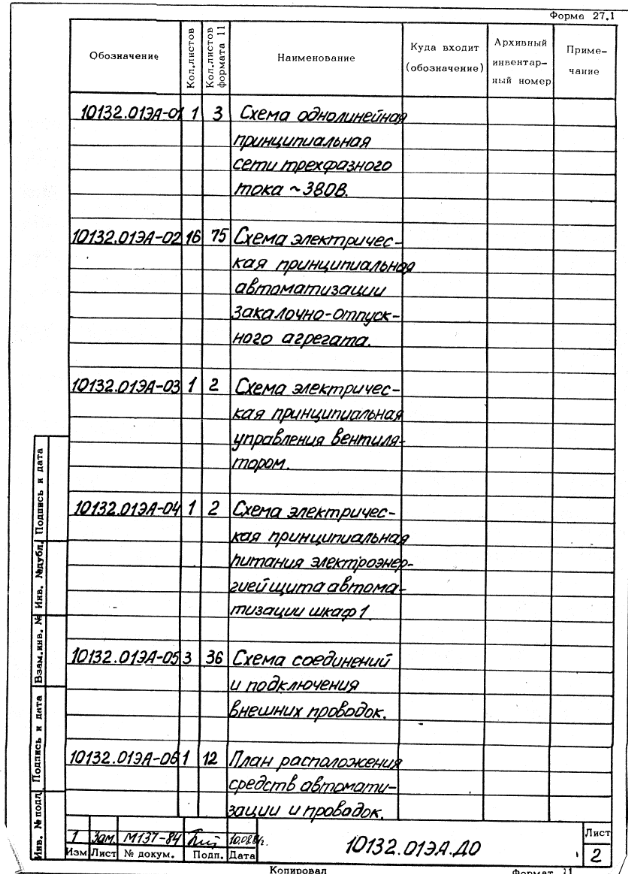 Форма 27.1
Обозначение Кол.листов Кол.листов формата 11 Наименование Куда входит (обозначение) Архивный инвентарный номер Приме-чание
10132.01ЭА-01 1 3 Схема однолинейная
принципиальная
сети трехфазного
тока ~380В.
10132.01ЭА-02 16 75 Схема электричес-
кая принципиальная
автоматизации
закалочно-отпуск-
ного агрегата.
10132.01ЭА-03 1 2 Схема электричес-
кая принципиальная
управления вентиля-
тором.
10132.01ЭА-04 1 2 Схема электричес-
кая принципиальная
питания электроэнер-
гией щита автома-
тизации шкаф 1.
10132.01ЭА-05 3 36 Схема соединений
и подключения
внешних проводок.
10132.01ЭА-06 1 12 План расположения
средств автомати-
зации и проводок.
Инв. № подл. Подпись и дата Взам.инв. № Инв. №дубл. Подпись и дата
1 Зам. М137-84
Изм Лист № докум. Подп. Дата
10132.01ЭА.ДО
Лист
2
Копировал Формат 11